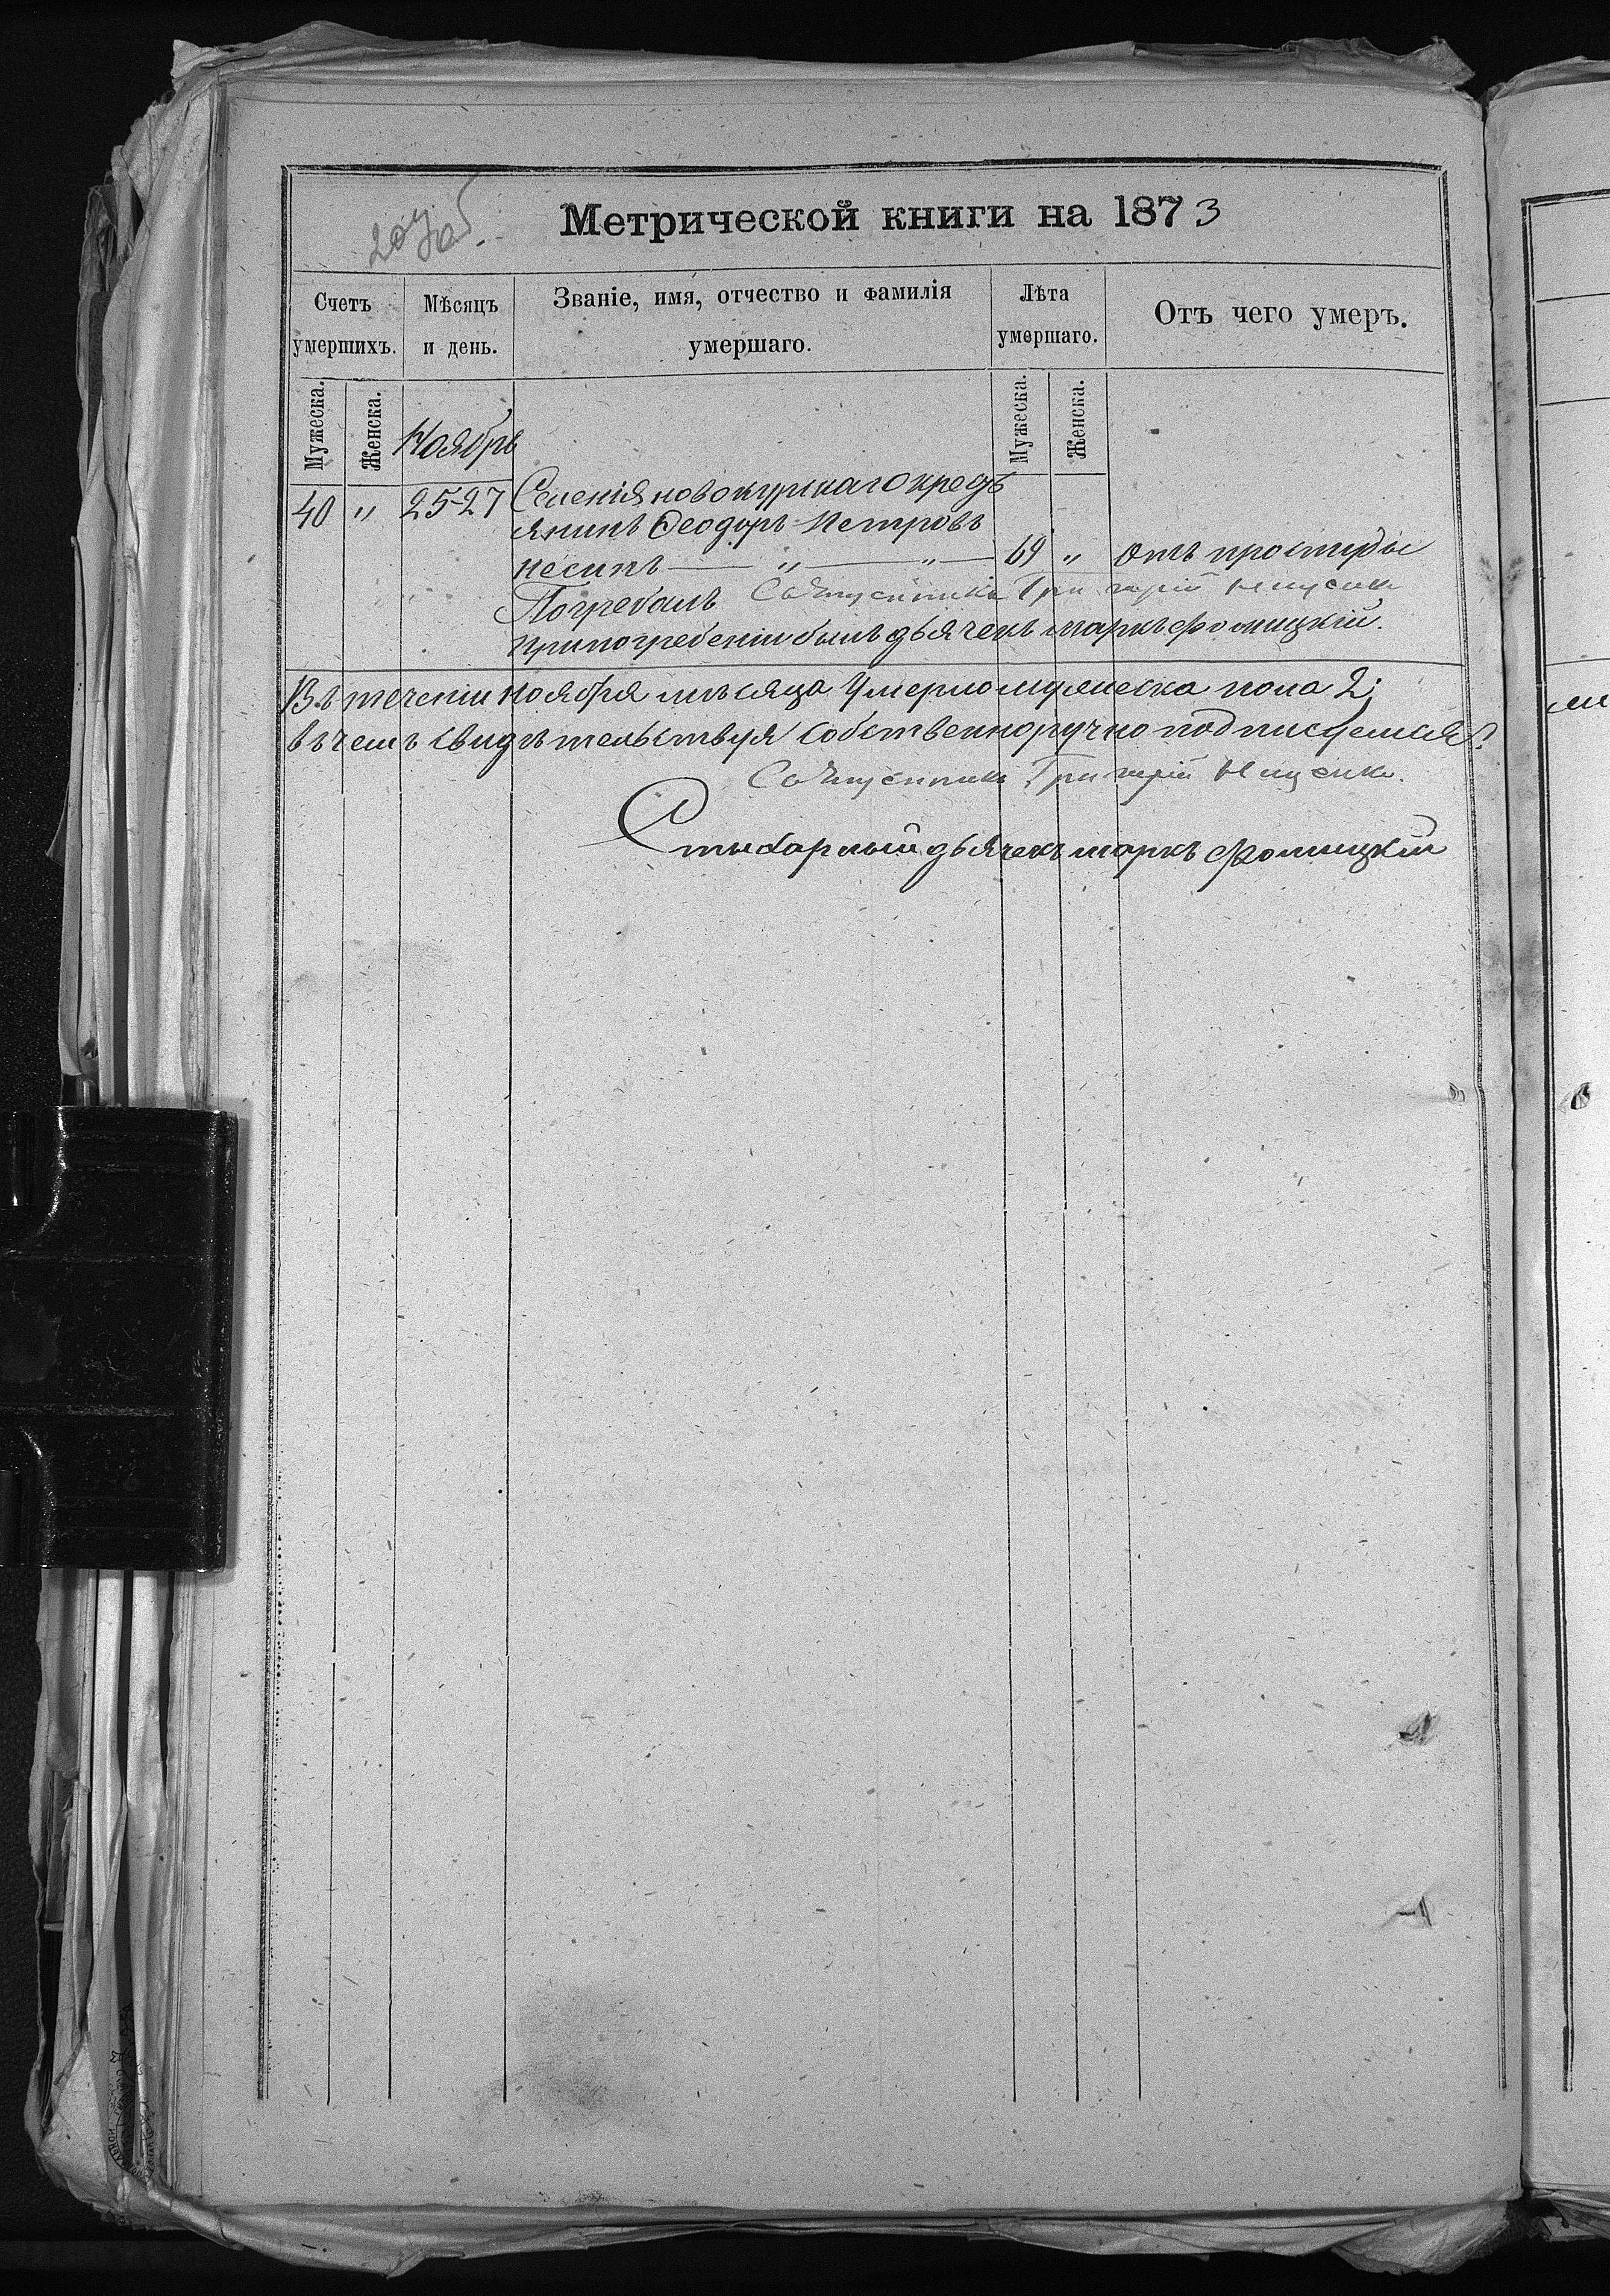 207 об.
Метрической книги на 1873
Счетъ умершихъ.
Мѣсяцъ и день.
Званіе, имя, отчество и фамилія умершаго.
Лѣта умершаго.
Отъ чего умеръ.
Мужеска.
Женска.
Ноябрь
Мужеска.
Женска.
40 " 25-27 Селенія новокурскаго кресть
янинъ Феодоръ Петровъ
Несинъ — " — " — 69 " отъ простуды
Погребалъ Священникъ Григорій
при погребеніи былъ дьячекъ Маркъ Фомицкій.
Въ теченіи ноября мѣсяца умерло мужеска пола 2;
въ чемъ свидѣтельствуя собственноручно подписуемся:
Священникъ Григорій
Стихарный дьячекъ Маркъ Фомицкій